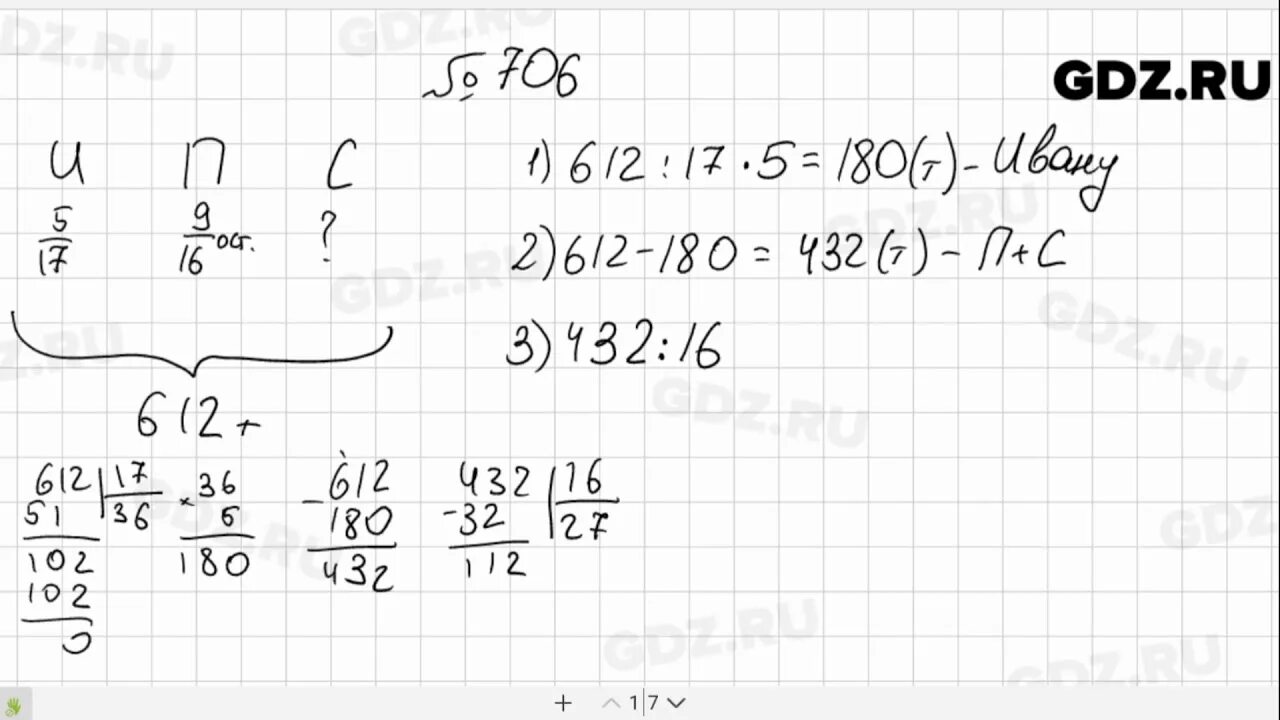 № 706
GDZ.RU
И П С
5/17 9/16 ост. ?
612 т
1) 612 : 17 · 5 = 180 (т) - Ивану
2) 612 - 180 = 432 (т) - П + С
3) 432 : 16
612 | 17
51 | 36
102
102
0
× 36
5
180
- 612
180
432
432 | 16
- 32 | 27
112
+ 1 | 7